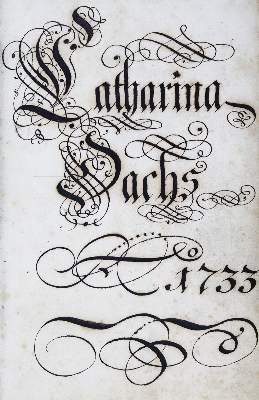 Catharina
Sachs
Aº 1733